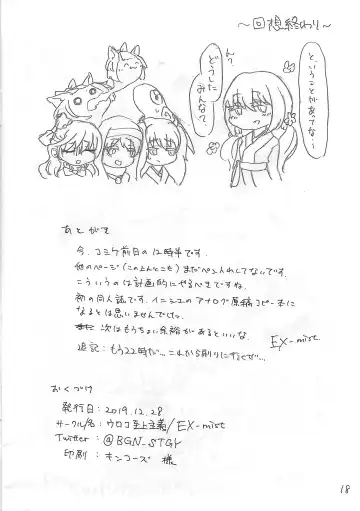 ～回想終わり～
と、いうことがあってな…
ん？
どうした
みんな？
あとがき
今、コミケ前日の12時半です。
他のページ(このほんとこも)まだペン入れしてないです。
こういうのは計画的にやるべきですね。
初の同人誌です。イニシエのアナログ原稿コピー本に
なるとは思いませんでした。
次はもうちょい余裕があるといいな。
EX-mist
追記：もう22時だ…これから刷りに行くぜ…
おくづけ
発行日：2019.12.28
サークル/名：ウロコ至上主義/EX-mist
Twitter：@BGN_STGY
印刷：キンコーズ 様
18